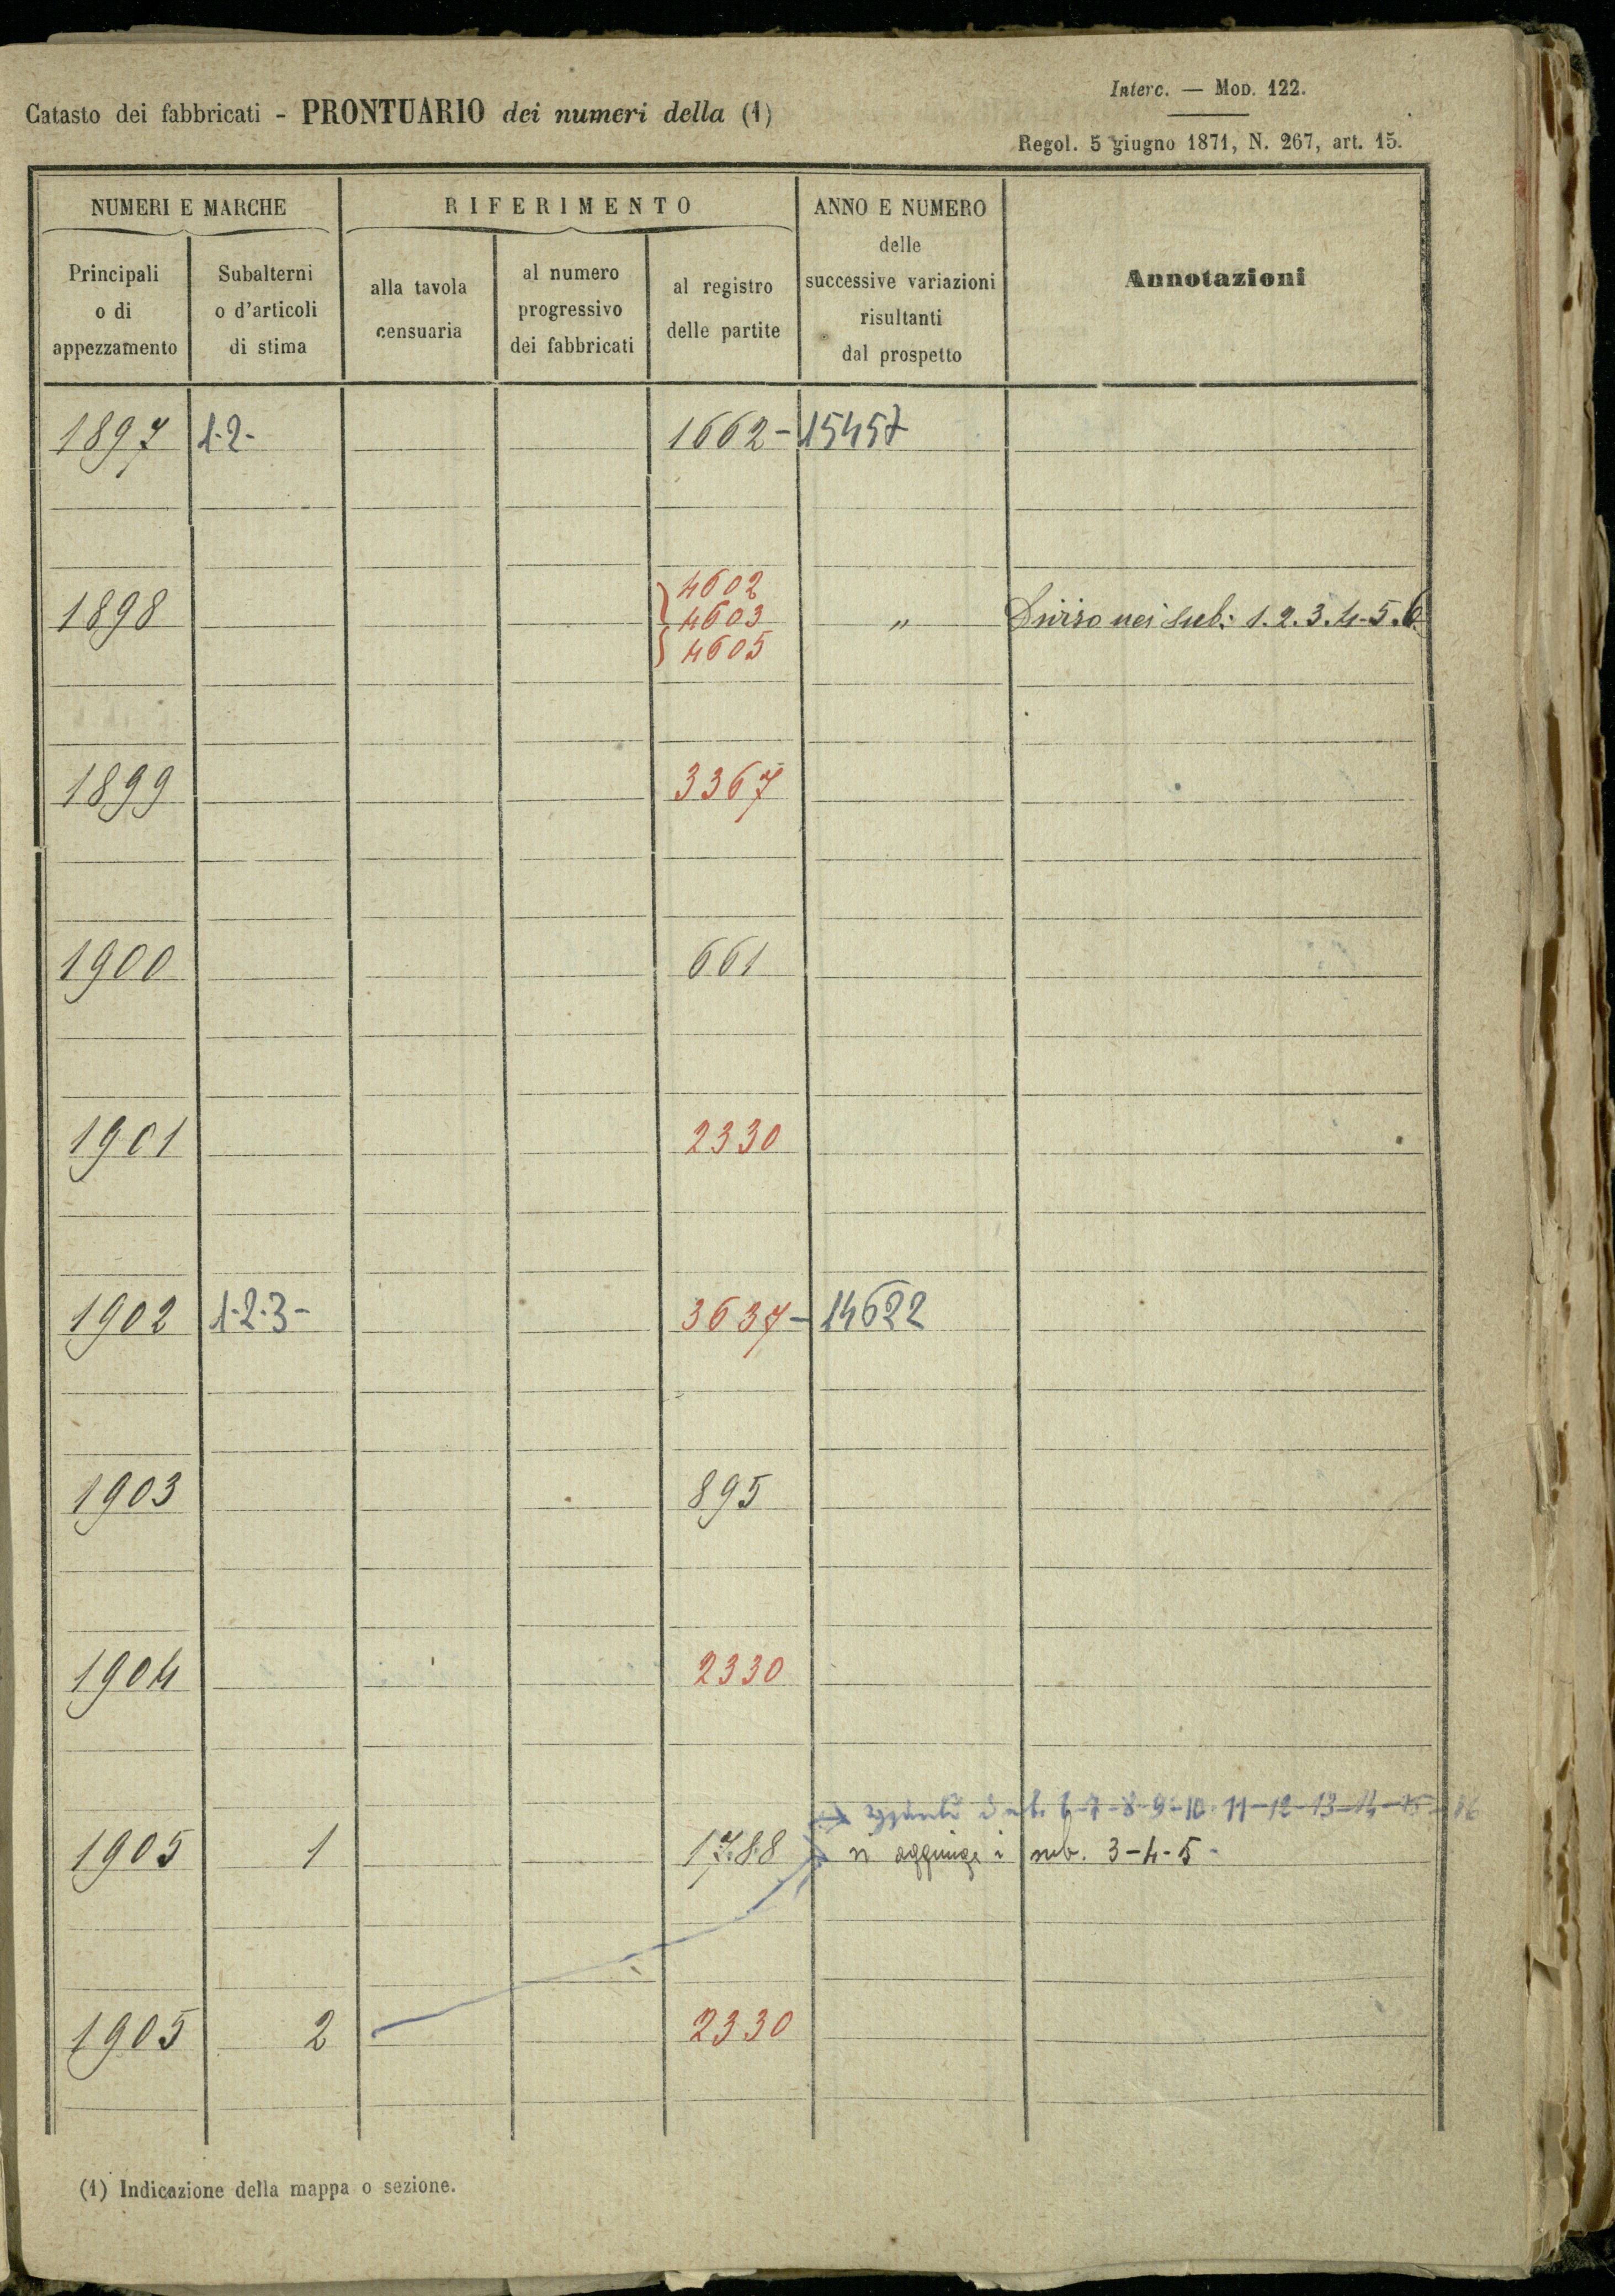 Catasto dei fabbricati - PRONTUARIO dei numeri della (1)
Interc. — Mod. 122.
Regol. 5 giugno 1871, N. 267, art. 15.
NUMERI E MARCHE
Principali
o di
appezzamento
Subalterni
o d'articoli
di stima
RIFERIMENTO
alla tavola
censuaria
al numero
progressivo
dei fabbricati
al registro
delle partite
ANNO E NUMERO
delle
successive variazioni
risultanti
dal prospetto
Annotazioni
1897 1-2- 1662 - 15457
4602
1898 4603 " Diviso nei sub: 1.2.3.4.5.6.
4605
1899 3367
1900 661
1901 2330
1902 1-2-3- 3637 - 14622
1903 895
1904 2330
6-7-8-9-10-11-12-13-14-15-16
1905 1 1788 si aggiunge i sub. 3-4-5-
1905 2 2330
(1) Indicazione della mappa o sezione.